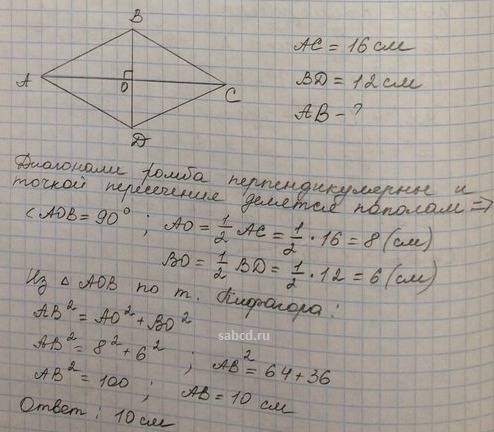 B
A
O
C
D
AC = 16 см
BD = 12 см
AB - ?
Диагонали ромба перпендикулярны и
точкой пересечения делятся пополам =>
∠AOB = 90° ; AO = 1/2 AC = 1/2 · 16 = 8 (см)
BO = 1/2 BD = 1/2 · 12 = 6 (см)
Из △ AOB по т. Пифагора :
AB² = AO² + BO²
sabcd.ru
AB² = 8² + 6² ; AB² = 64 + 36
AB² = 100 ; AB = 10 см
Ответ : 10 см